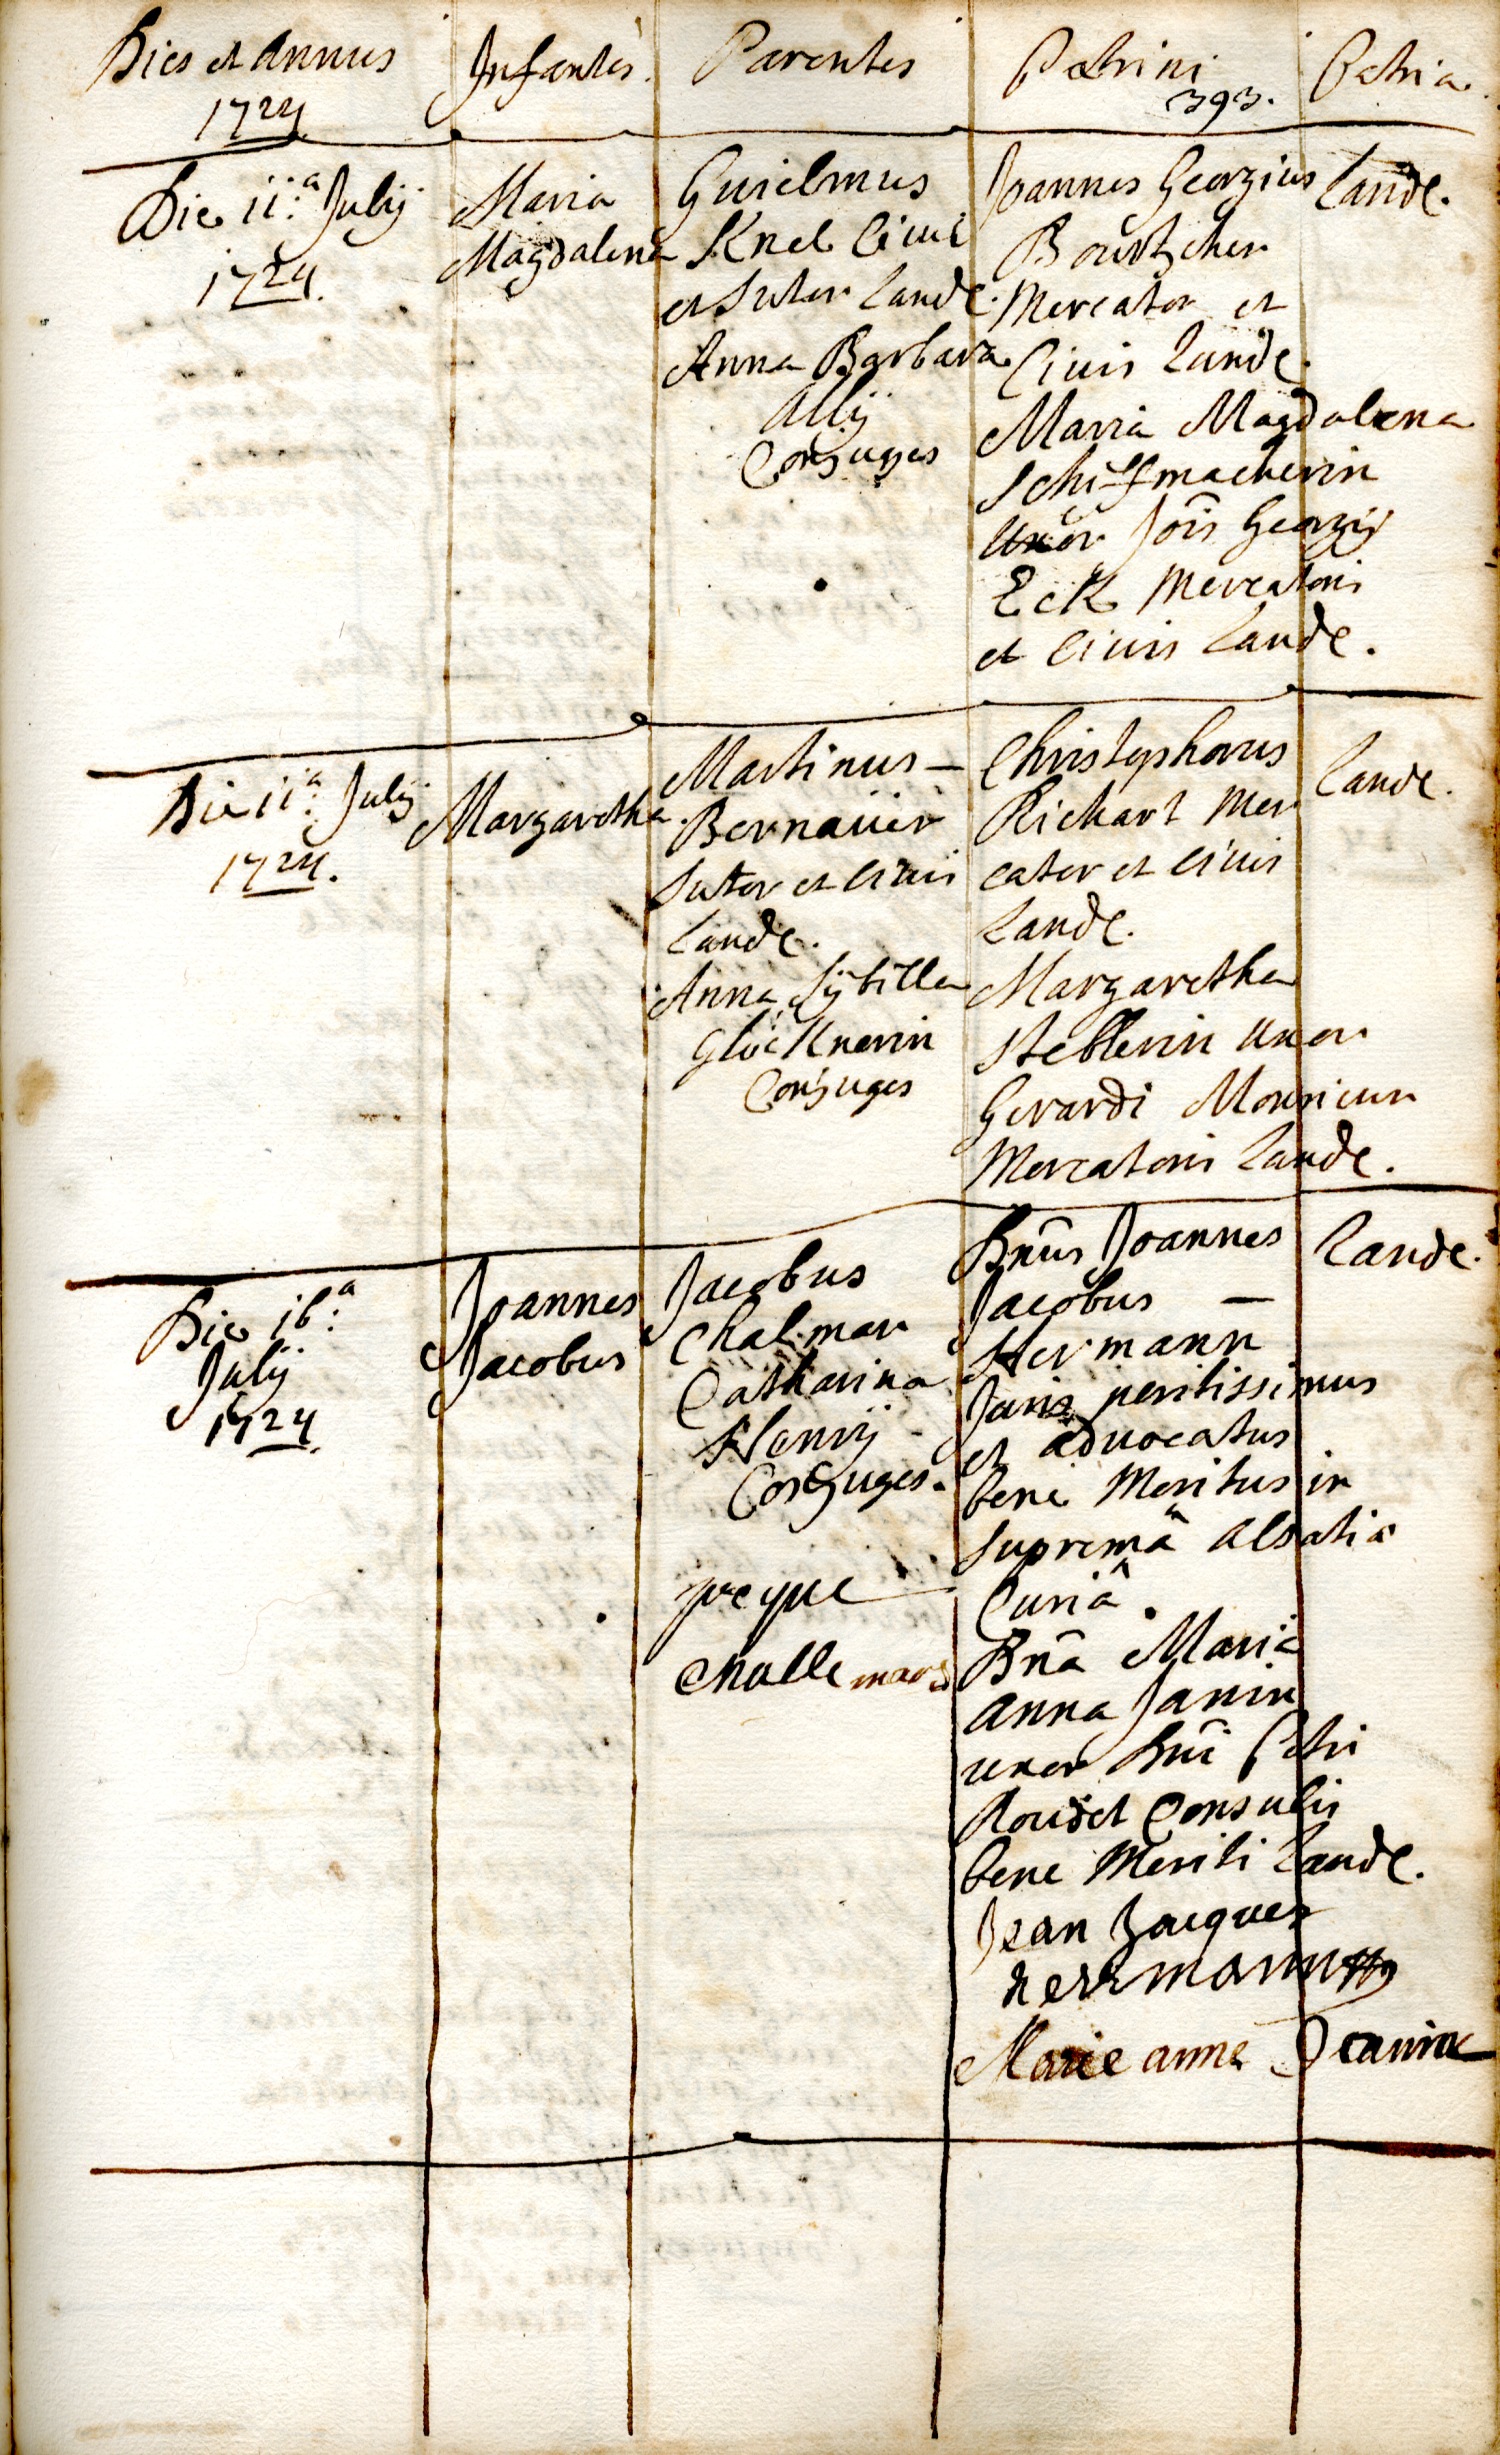 Dies et Annus
1724
Infantes.
Parentes
Patrini
393.
Patria.
Die 11.a Julij
1724.
Maria
Magdalena
Guielmus
Knel Civis
et Sutor Landę.
Anna Barbara
Allij
Conjuges
Joannes Georgius
Mercator et
Civis Landę.
Maria Magdalena
Schiffmacherin
Uxor Jois Georgij
Eck Mercatoris
et Civis Landę.
Landę.
Die 11.a Julij
1724.
Margaretha.
Martinus –
Bernauer
Sutor et Civis
Landę.
Anna Sÿbilla
Glöcknerin
Conjuges
Christophorus
Richart Mer
cator et Civis
Landę.
Margaretha
Steblerin Uxor
Gerardi
Mercatoris Landę.
Landę.
Die 16.a
Julij
1724.
Joannes
Jacobus
Jacobus
Chalmar
Catharina
Henrij
Conjuges.
Dnus Joannes
Jacobus –
Hermann
Juris peritissimus
et advocatus
bene Meritus in
Supremâ Alsatiæ
Curiâ.
Dna Maria
Anna Janin
uxor Dni Petri
Consulis
bene Meriti Landę.
Jean Jacques
herrmann
Marie anne Jeanine
Landę.